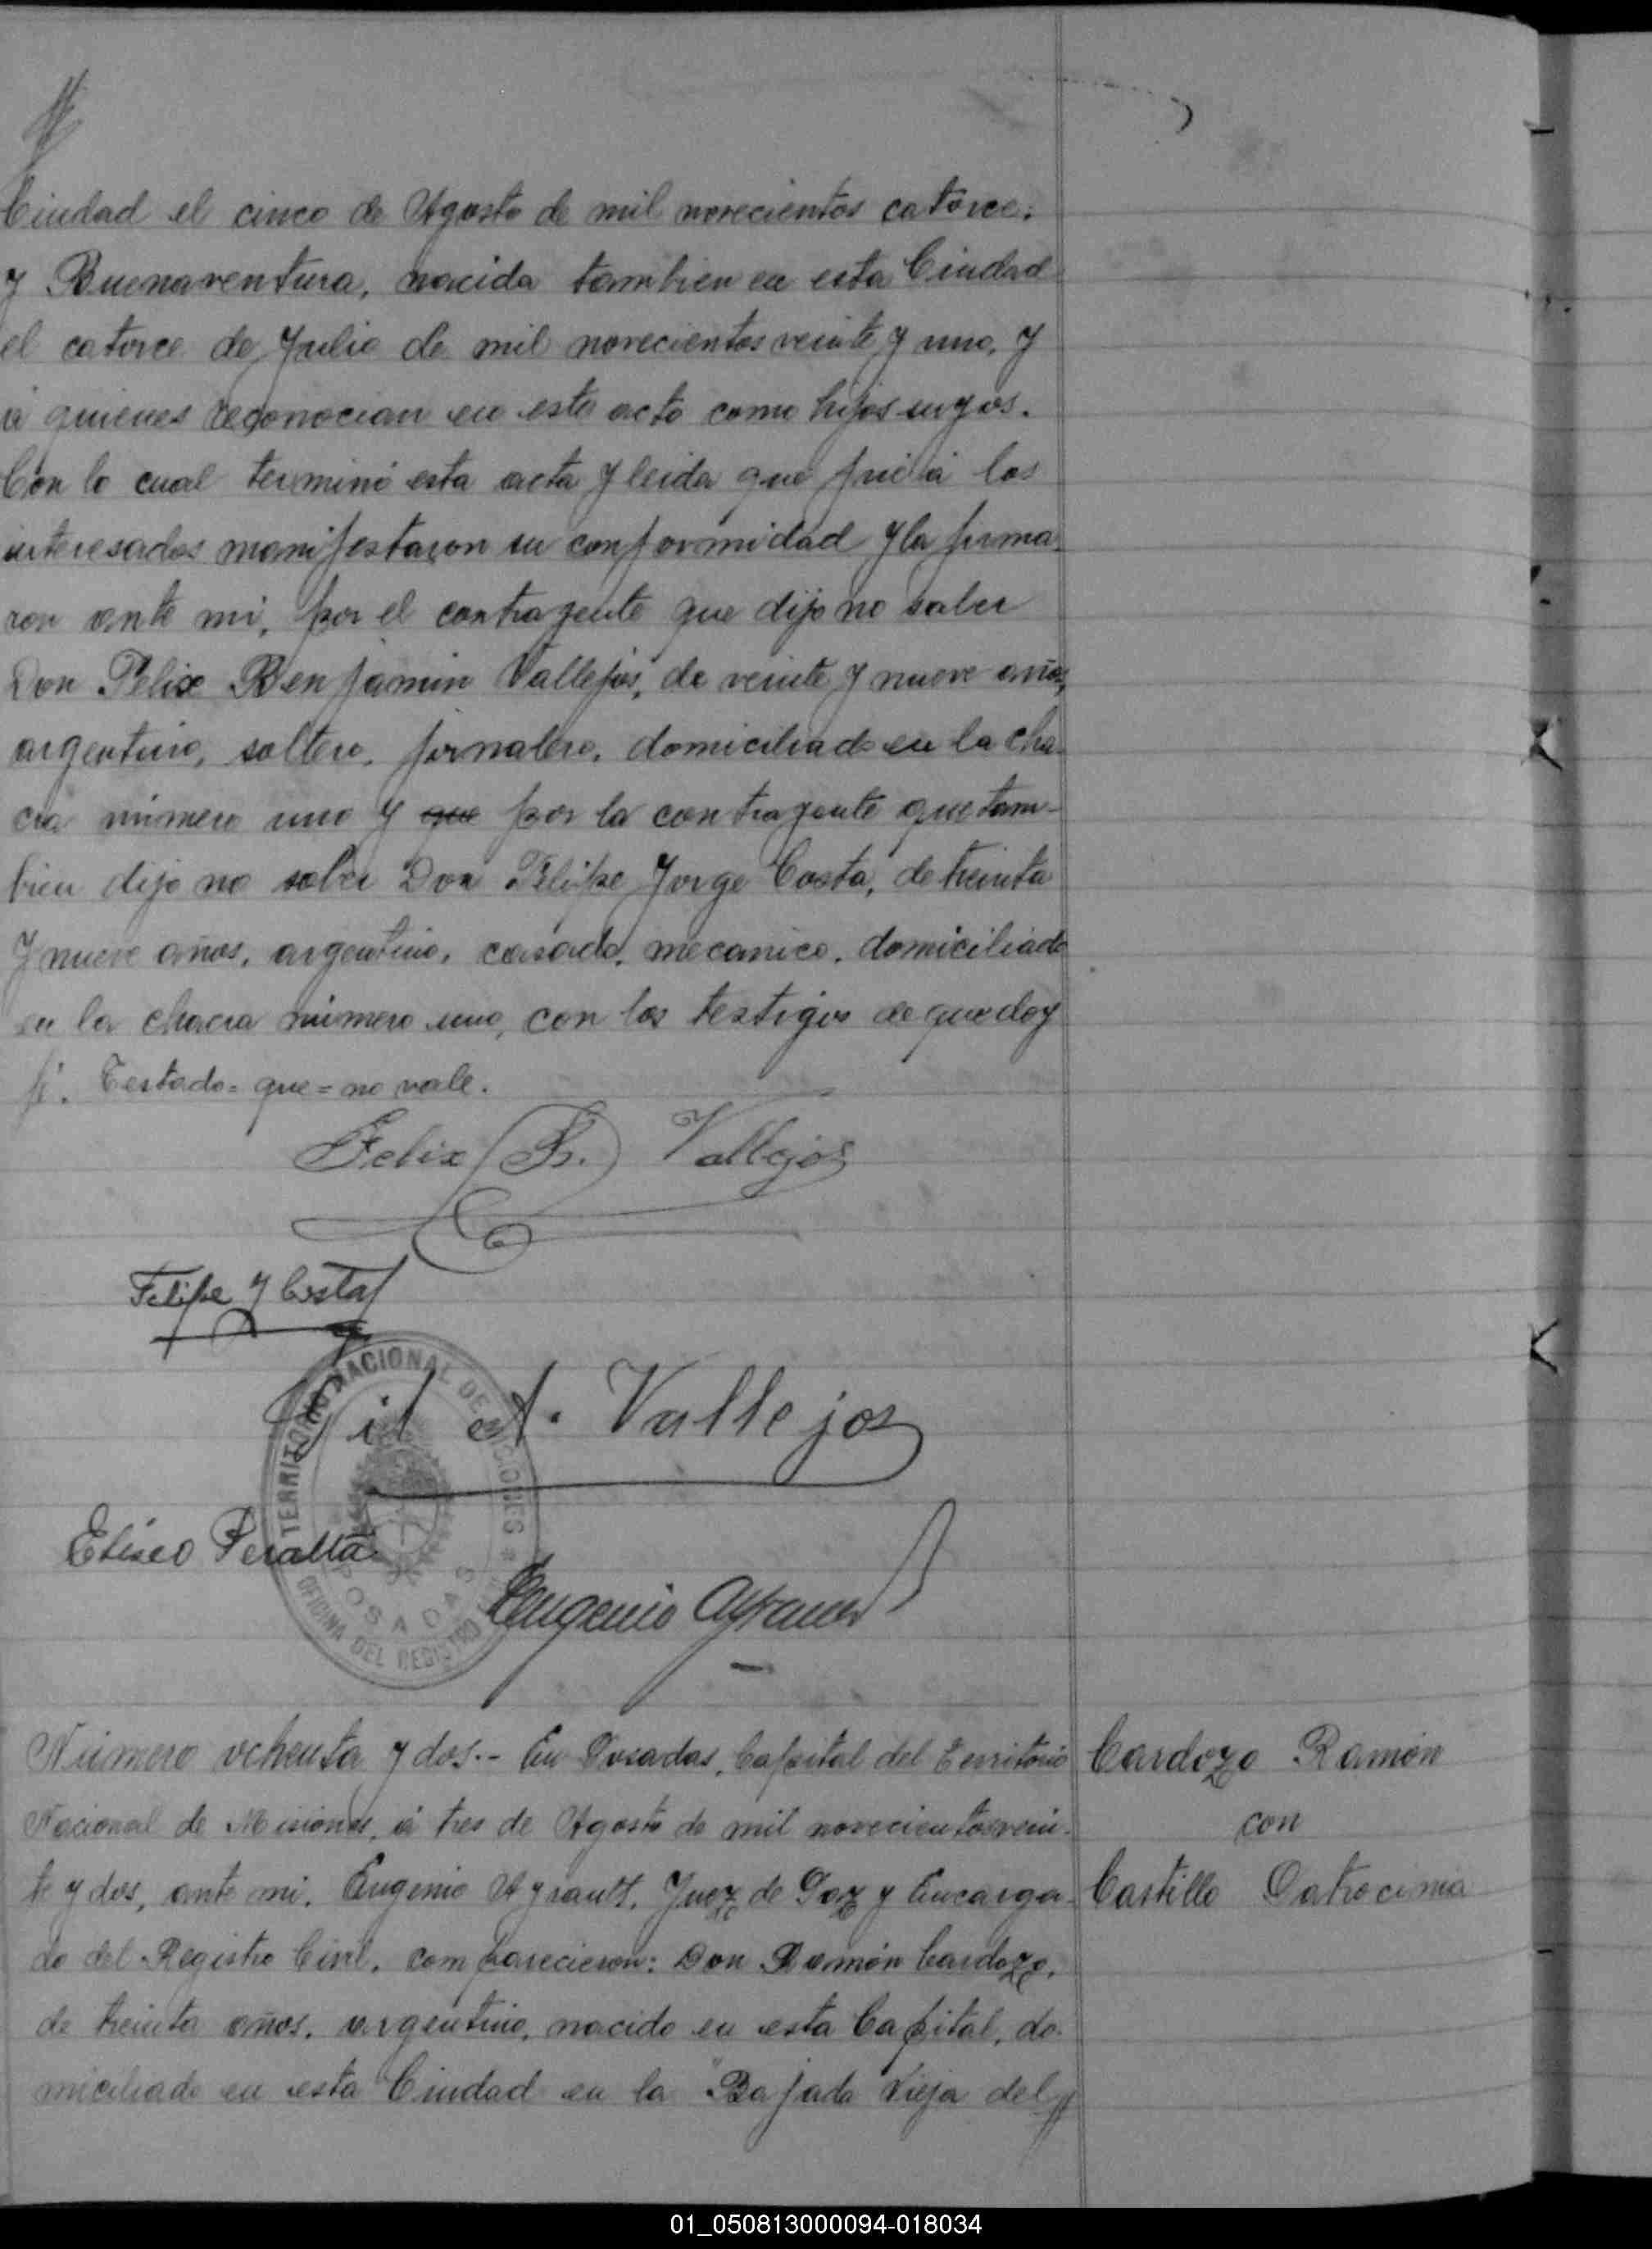 Ciudad el cinco de Agosto de mil novecientos catorce;
y Buenaventura, nacida tambien en esta Ciudad
el catorce de Julio de mil novecientos veinte y uno, y
á quienes reconocian en este acto como hijos suyos.
Con lo cual terminó esta acta y leida que fué á los
interesados manifestaron su conformidad y la firma-
ron ante mi, por el contrayente que dijo no saber
Don Felix Benjamin Vallejos, de veinte y nueve años,
argentino, soltero, jornalero, domiciliado en la cha-
cra número uno y que por la contrayente que tam-
bien dijo no saber Don Felipe Jorge Costa, de treinta
y nueve años, argentino, casado, mecanico, domiciliado
en la chacra número uno, con los testigos de que doy
fé. Testado= que = no vale.
Felix B. Vallejos
Felipe J Costa
Gil A. Vallejos
TERRITORIO NACIONAL DE MISIONES
Eliseo Peralta
POSADAS
OFICINA DEL REGISTRO
Eugenio Ayrault
Número ochenta y dos.- En Posadas, Capital del Territorio
Cardozo Ramón
Nacional de Misiones, á tres de Agosto de mil novecientos vein-
con
te y dos, ante mi, Eugenio Ayrault, Juez de Paz y Encarga-
Castillo Patrocinia
do del Registro Civil, comparecieron: Don Ramón Cardozo,
de treinta años, argentino, nacido en esta Capital, do-
miciliado en esta Ciudad en la "Bajada Vieja del
01_050813000094-018034